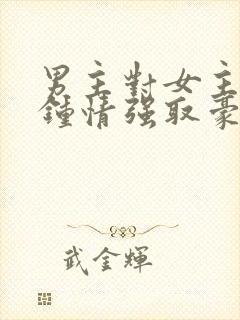 男主對女主
鍾情強取豪
武金輝